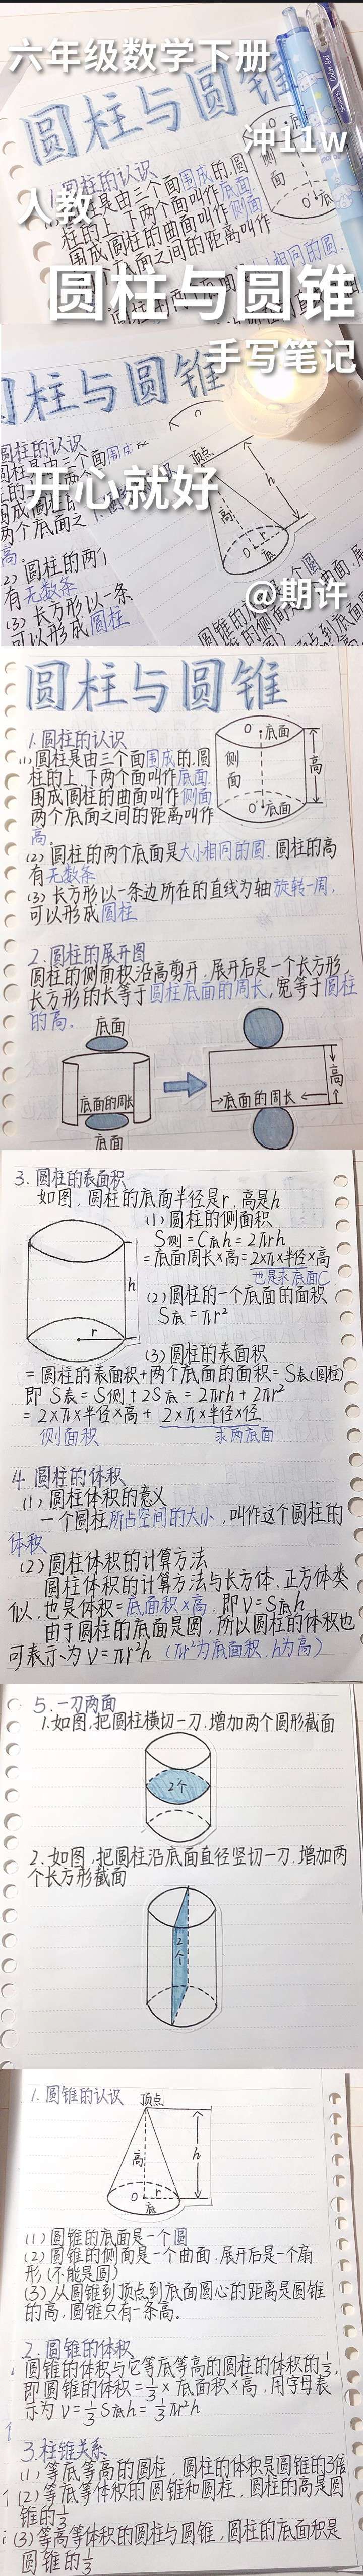 六年级数学下册
圆柱与圆锥
冲11w
1.圆柱的认识
人教
圆柱与圆锥
手写笔记
圆柱与圆锥
圆柱的认识
开心就好
顶点
高
h
O
r
底
(2) 圆柱的两
有无数条
(3) 长方形以一条
可以形成圆柱
@期许
圆柱与圆锥
1.圆柱的认识
(1)圆柱是由三个面围成的,圆
柱的上、下两个面叫作底面.
围成圆柱的曲面叫作侧面
两个底面之间的距离叫作
高。
O 底面
侧面
高
O 底面
(2) 圆柱的两个底面是大小相同的圆.圆柱的高
有无数条
(3) 长方形以一条边所在的直线为轴旋转一周,
可以形成圆柱
2.圆柱的展开图
圆柱的侧面积沿高剪开,展开后是一个长方形,
长方形的长等于圆柱底面的周长,宽等于圆柱
的高。
底面
底面的周长
底面
高
底面的周长
3.圆柱的表面积
如图,圆柱的底面半径是r,高是h
(1) 圆柱的侧面积
S侧=C底h=2πrh
=底面周长×高=2×π×半径×高
也是求底面C
h
r
(2) 圆柱的一个底面的面积
S底=πr²
(3) 圆柱的表面积
=圆柱的表面积+两个底面的面积=S表(圆柱)
即 S表=S侧+2S底=2πrh+2πr²
=2×π×半径×高+2×π×半径×径
侧面积 求两底面
4.圆柱的体积
(1) 圆柱体积的意义
一个圆柱所占空间的大小,叫作这个圆柱的
体积
(2) 圆柱体积的计算方法
圆柱体积的计算方法与长方体、正方体类
似,也是体积=底面积×高,即V=S底h
由于圆柱的底面是圆,所以圆柱的体积也
可表示为V=πr²h (πr²为底面积,h为高)
5.一刀两面
1.如图,把圆柱横切一刀,增加两个圆形截面
2个
2.如图,把圆柱沿底面直径竖切一刀,增加两
个长方形截面
2个
1.圆锥的认识
顶点
高
h
O
r
底
(1) 圆锥的底面是一个圆
(2) 圆锥的侧面是一个曲面,展开后是一个扇
形(不能是圆)
(3) 从圆锥到顶点到底面圆心的距离是圆锥
的高,圆锥只有一条高。
2.圆锥的体积
圆锥的体积与它等底等高的圆柱的体积的1/3,
即圆锥的体积=1/3×底面积×高,用字母表
示为V=1/3S底h=1/3πr²h
3.柱锥关系
(1) 等底等高的圆柱,圆柱的体积是圆锥的3倍
(2) 等底等体积的圆锥和圆柱,圆柱的高是圆
锥的1/3
(3) 等高等体积的圆柱与圆锥,圆柱的底面积是
圆锥的1/3